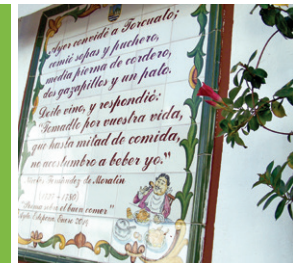 Ayer convidé a Torcuato;
comió sopas y puchero,
media pierna de cordero,
dos gazapillos y un pato.
Doile vino, y respondió:
"Tomadlo por vuestra vida,
que hasta mitad de comida,
no acostumbro a beber yo."
Fernández de Moratín
(1737 - 1780)
el buen comer"
Estepona, Enero